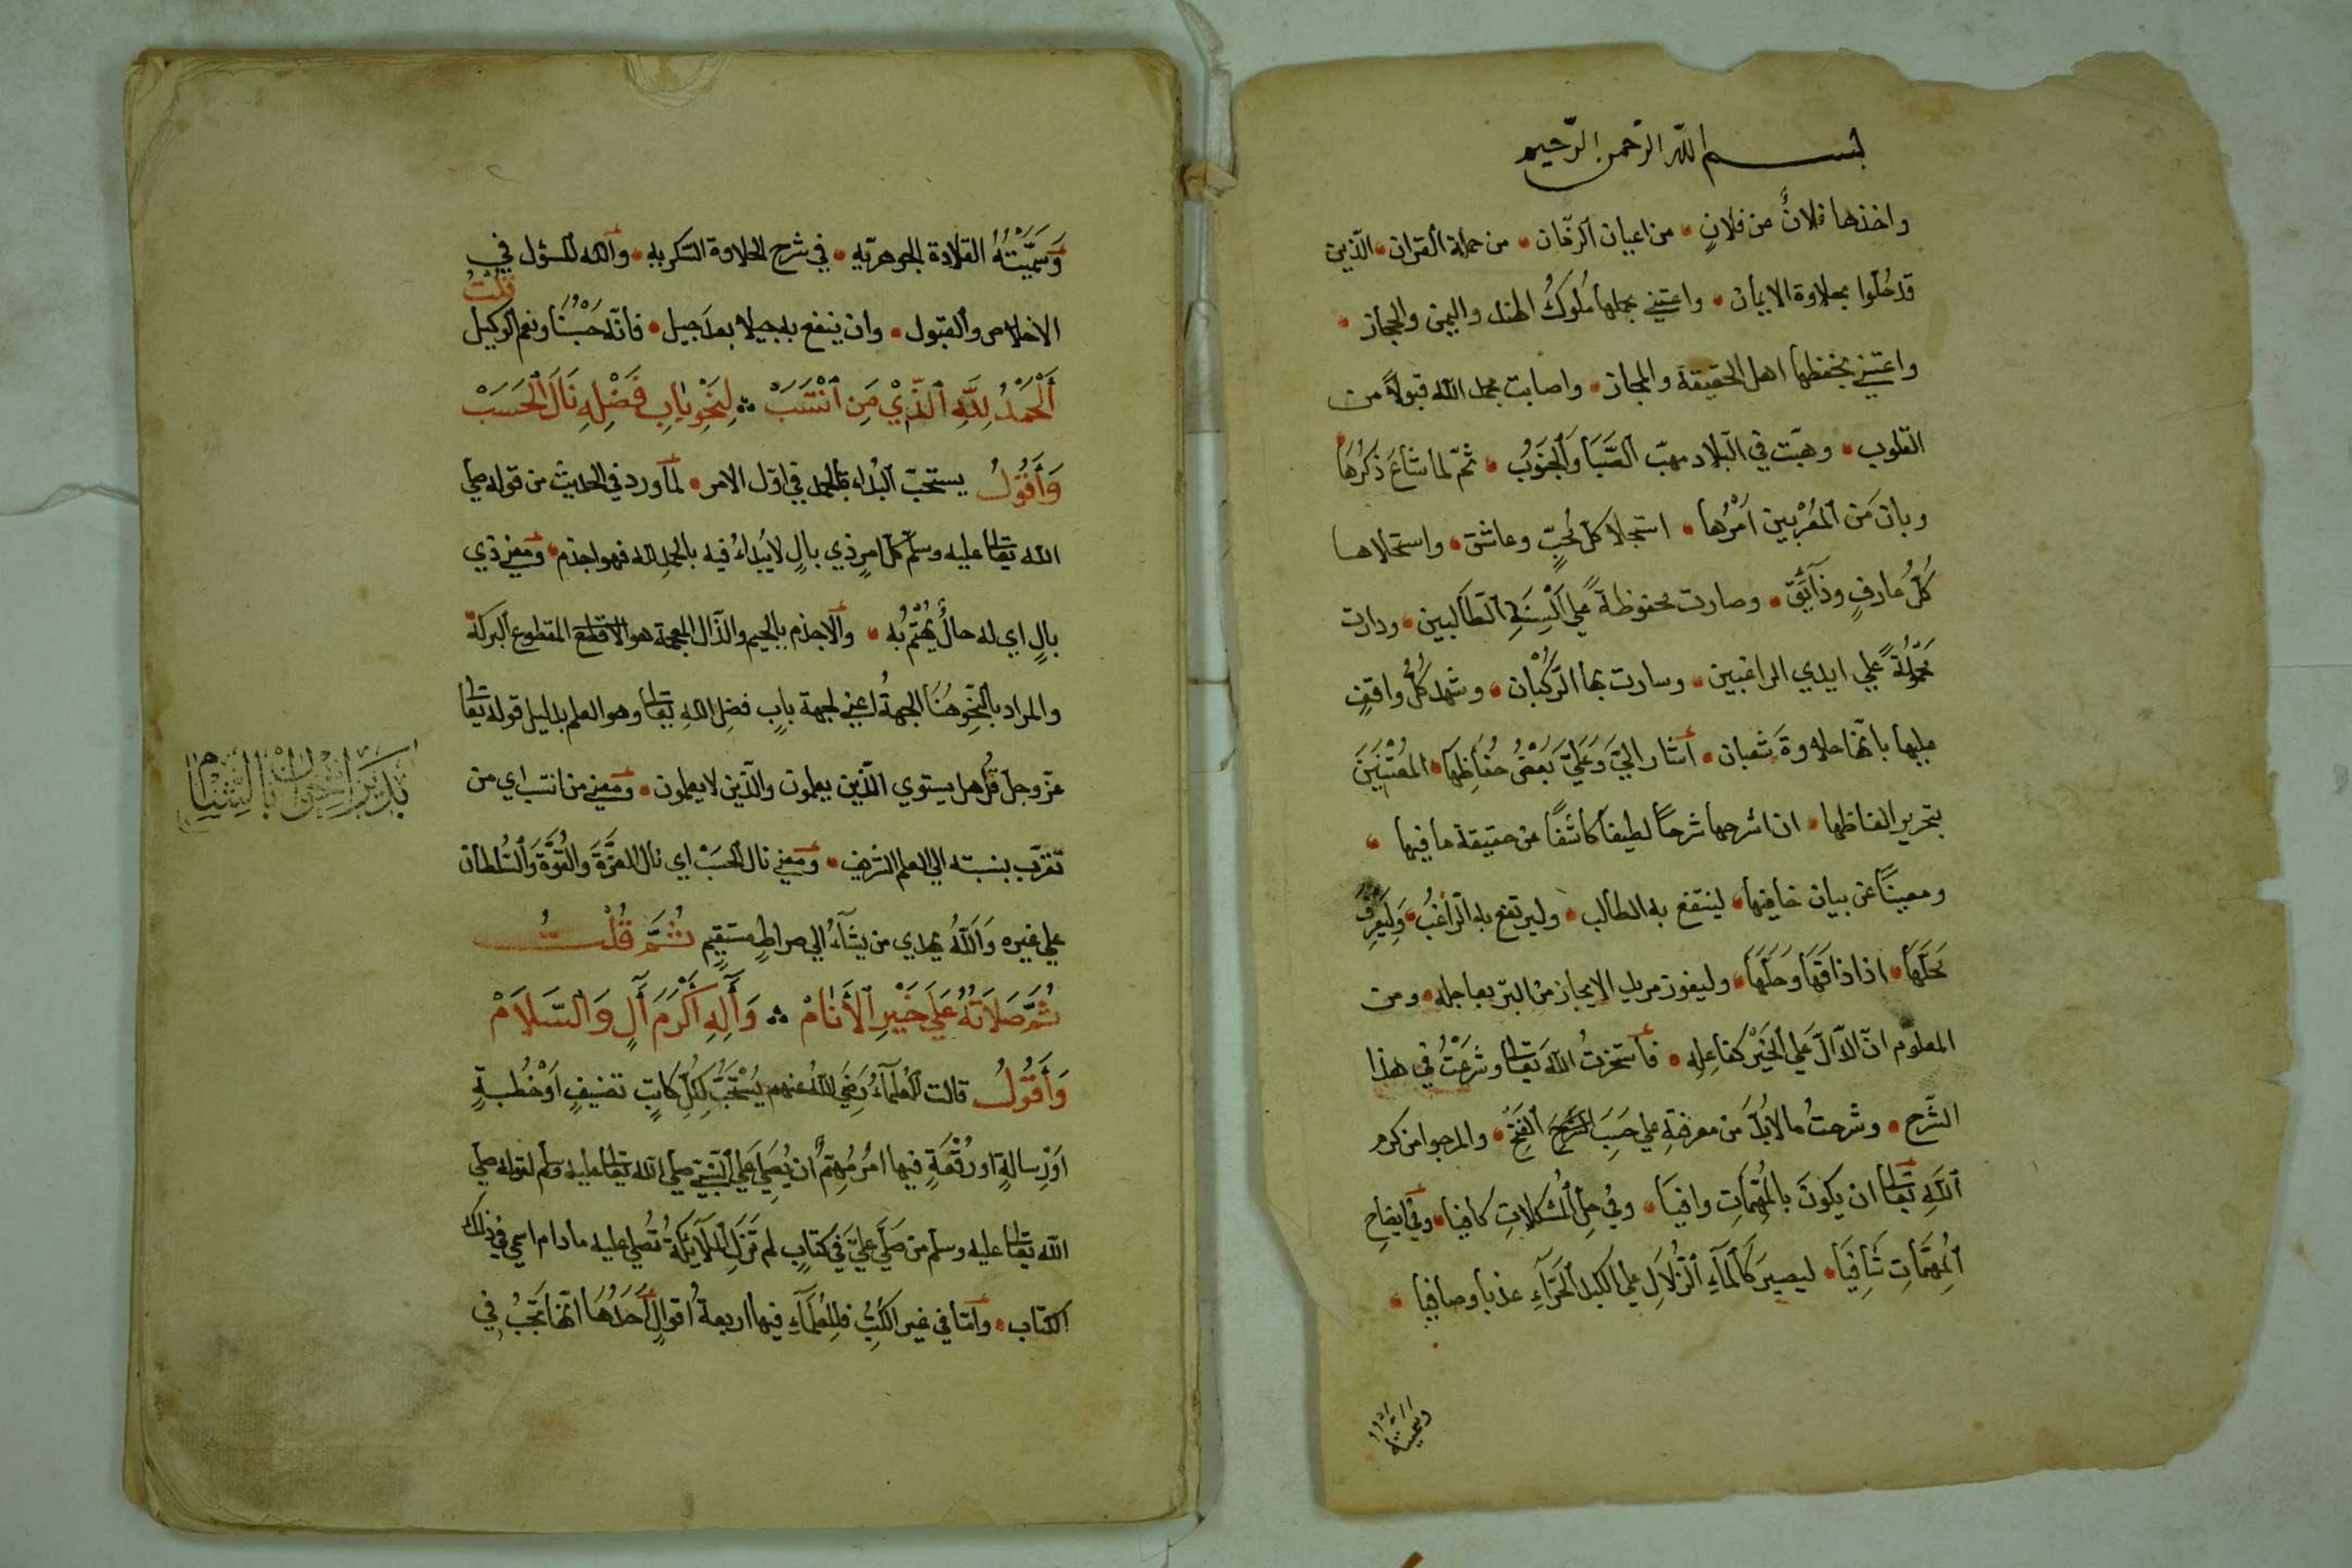 بسم الله الرحمن الرحيم
واخذها فلانٌ عن فلانٍ من اعيان الزمان من حملة القران الّذين
قد حُلّوا بحلاوة الايمان واعتني بحملها مُلوكُ الهند واليمن والحجاز
واعتني بحفظها اهل الحقيقة والمجاز واصابت بحمد الله قبولاً من
القلوب وهبّت في البلاد مهبّ الصَّبَا وَالجنَوُب ثمّ لما شاعَ ذكرُهَا
وبان عن المُعْربين امْرُها استجلا كل مُحبّ وعاشق واستحلاها
كلُّ عارفٍ وذآئق وصارت محفوظةً علي اَلْسِنَةِ الطالبين ودارت
محمولةً علي ايدي الراغبين وسارت بها الرّكْبَان وشهد كُلُّ واقفٍ
عليها بانّها حلاوةَ شعبان اشار اليَّ وَعَلَيَّ بَعْضُ حفاظِهَا المُعْتَنِينَ
بتحرير الفاظها ان اشرحها شرحًا لطيفًا كاشفًا عن حقيقة ما فيها
ومعينًا عن بيان خافيها لينتفع به الطالب وليرتفع به الرّاغبُ وَليَعْرِفَ
مَحلَّهَا اذا ذاقَهَا وحَلَّهَا وليفوز مريد الايجاز من البرّ بعاجله ومن
المعلوم انّ الدّالَّ عَلي الخَيْرِ كفاعِلِهِ فاستخرتُ اللهَ تعالى وشَرَعْتُ في هذا
الشَّرح وشرحتُ ما لابُدَّ من معرفتِهِ علي حَسَبَ الفَتْحِ والمرجوا من كرم
اللهِ تعالى ان يكونَ بالمُهمّاتِ وافيَا وفي حِلّ المُشكلاتِ كافيا وفي ايضاحِ
المُهمَّاتِ شَافِيَا ليصيرَ كالمآءِ الزُّلاَلِ علي الكبد الحَرّآءِ عذبا وصافيا
وسميته
وَسَمَّيْتُهُ القلادة الجوهريّه في شرح الحلاوة السّكريه والله المسؤل في
الاخلاص والقبول وان ينفع به جيلا بعد جيل فانّه حَسْبُنَا ونعم الوكيل قُلْتُ
اَلْحَمْدُ لِلَّهِ الَّذِيْ مَنِ انْتَسَبْ لِنَحْوِ بَابِ فَضْلِهِ نَالَ الحَسَبْ
وَأَقُولُ يستحبّ البُداء بالحمد في اوّل الامر لما ورد في الحديث من قوله صلي
الله تعالى عليه وسلّم كلّ امرٍ ذي بالٍ لا يُبداءُ فيه بالحمد لله فهو اجذم ومعني ذي
بالٍ اي له حالٌ يُهْتَمُّ به والاجذم بالجيم والذّال المعجمة هو الاقطع المقطوع البركة
والمراد بالنّحْوِ هُنَا الجهةُ اعني لجهة بابِ فضلِ اللهِ تعالى وهو العلم بدليل قوله تعالى
عزّ وجلّ قُل هل يستوي الّذين يعلمون والّذين لا يعلمون ومعني من انتسب اي من
تقرّب بنسبته الي العلم الشريف ومعني نال الحَسَبْ اي نال العِزَّةَ والقُوَّةَ وَالسُّلطان
علي غيره وَاللَّهُ يهدي من يشآءُ الي صراطٍ مستقيمٍ ثُمَّ قُلْتُ
ثُمَّ صَلاَتُهُ عَلَي خَيْرِ الأَنَامْ وَآلِهِ اَكْرَمَ آلٍ وَالسَّلاَمْ
وَأَقُولُ قالت العُلمآءُ رَضِيَ اللهُ عنهم يُسْتَحَبُّ لِكُلّ كاتِبٍ تصنيفٍ اَوْ خُطْبةٍ
اوْ رِسالةٍ او رُقْعةٍ فيها امْرٌ مُهِمٌّ ان يُصَلِيَ علي النّبيِّ صلي الله تعالى عليه وسلم لقوله صلي
الله تعالى عليه وسلم من صَلّي عليّ في كتابٍ لم تزَلِ الملآئكةُ تُصلي عليه ما دام اسمي في ذلك
الكتاب وامّا في غير الكُتُبِ فلِلعُلمَآءِ فيها اربعةُ اقوالٍ اَحَدُهَا انّها تَجبُ في